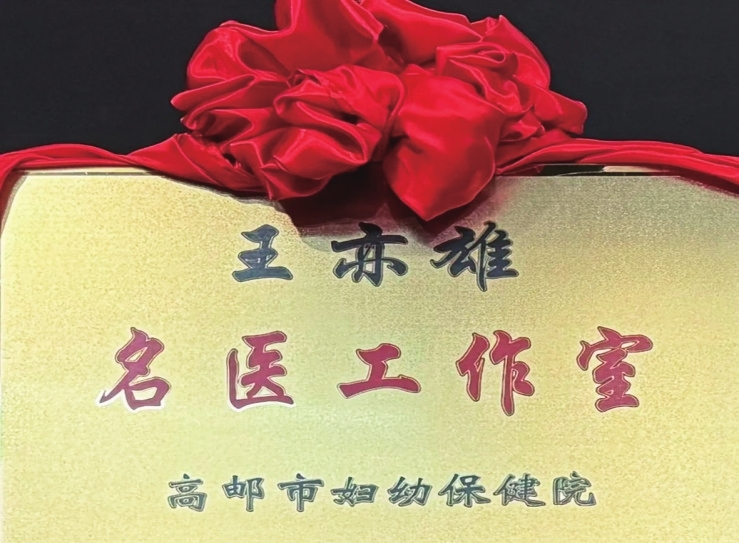 王亦雄
名医工作室
高邮市妇幼保健院